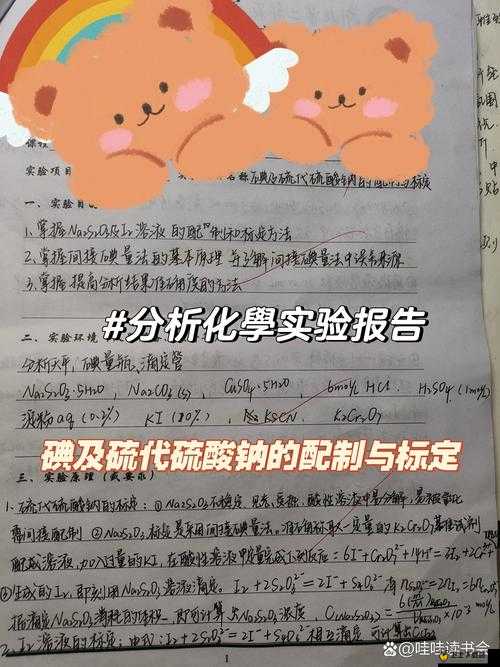 实验项目
碘及硫代硫酸钠的配制与标定
一、实验目
1、掌握Na₂S₂O₃及I₂溶液的配制和标定方法
2、掌握间接碘量法的基本原理 并了解间接碘量法中误差来源
3、掌握提高分析结果准确度的方法
#分析化學实验报告
二、实验环境
分析天平、碘量瓶、滴定管
Na₂S₂O₃·5H₂O, Na₂CO₃(s), CuSO₄·5H₂O, 6mol/L HCl, H₂SO₄(1mol/L)
淀粉aq(0.2%) KI(10%), KSCN, K₂Cr₂O₇
碘及硫代硫酸钠的配制与标定
三、实验原理(或要求)
1、硫代硫酸钠的标定:①Na₂S₂O₃不稳定,见光、受热、酸性溶液中易分解,易
需间接配制 ②Na₂S₂O₃标定是采用间接碘量法。准确称取一定量的K₂Cr₂O₇基准试剂
配成溶液,加入过量的KI,在酸性溶液中定量完成下列反应:6I⁻+Cr₂O₇²⁻+14H⁺=3I₂+2Cr³⁺
生成的I₂,即刻用Na₂S₂O₃溶液滴定。I₂+2S₂O₃²⁻=2I⁻+S₄O₆²⁻
据滴定Na₂S₂O₃消耗的体积,即可计算出Na₂S₂O₃浓度,
2、I₂溶液的标定:由于I₂+2S₂O₃²⁻=2I⁻+S₄O₆²⁻相互滴定 可计算出
1
@哇哇读书会